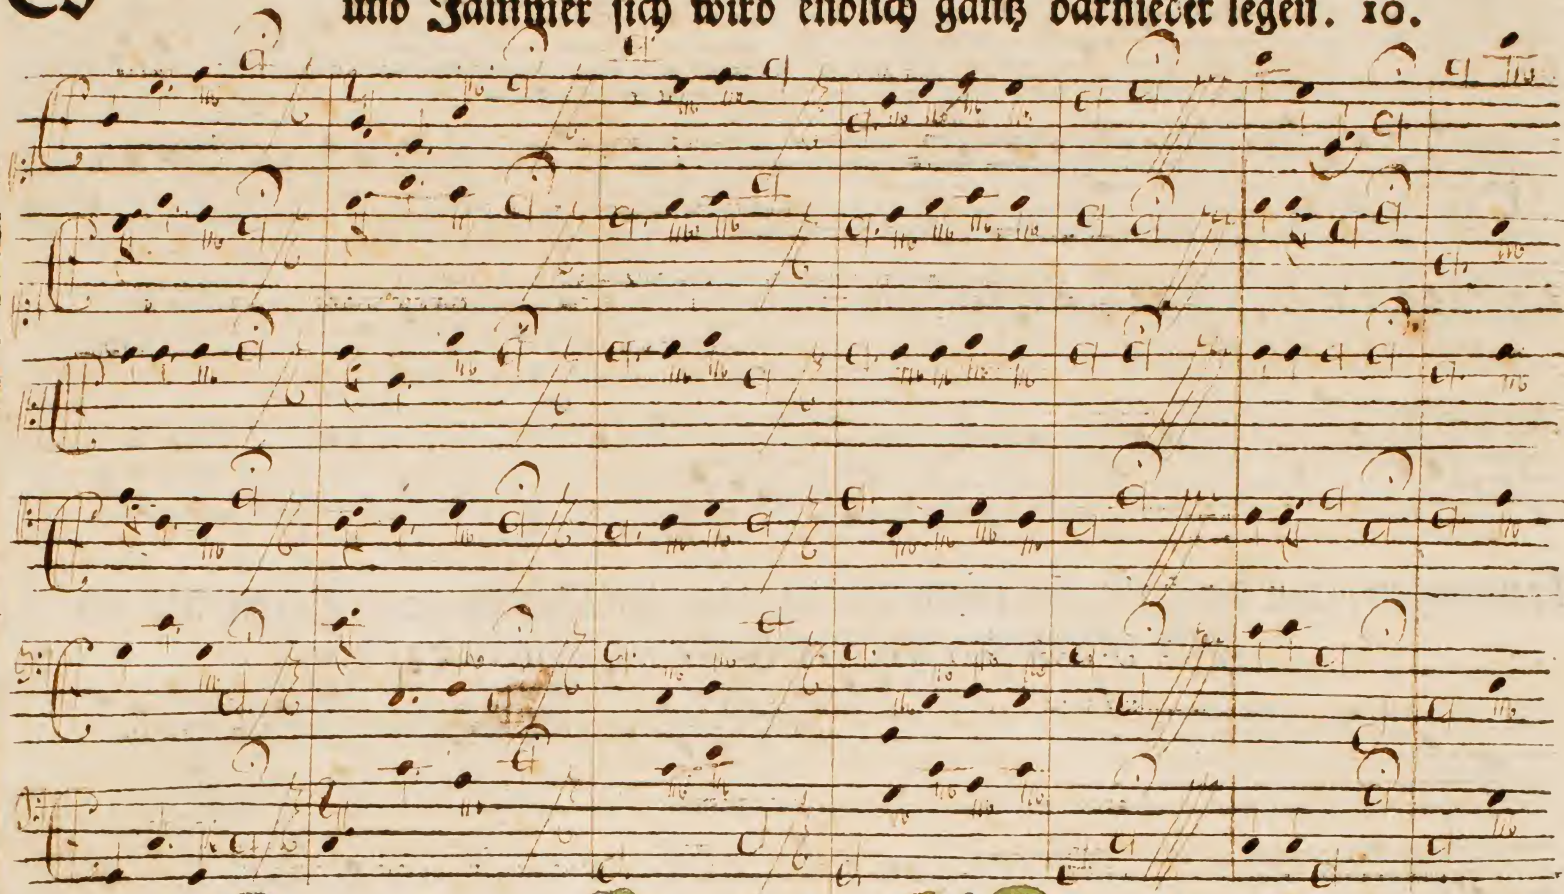 und Jammer sich wird endlich gantz darnieder legen. 10.